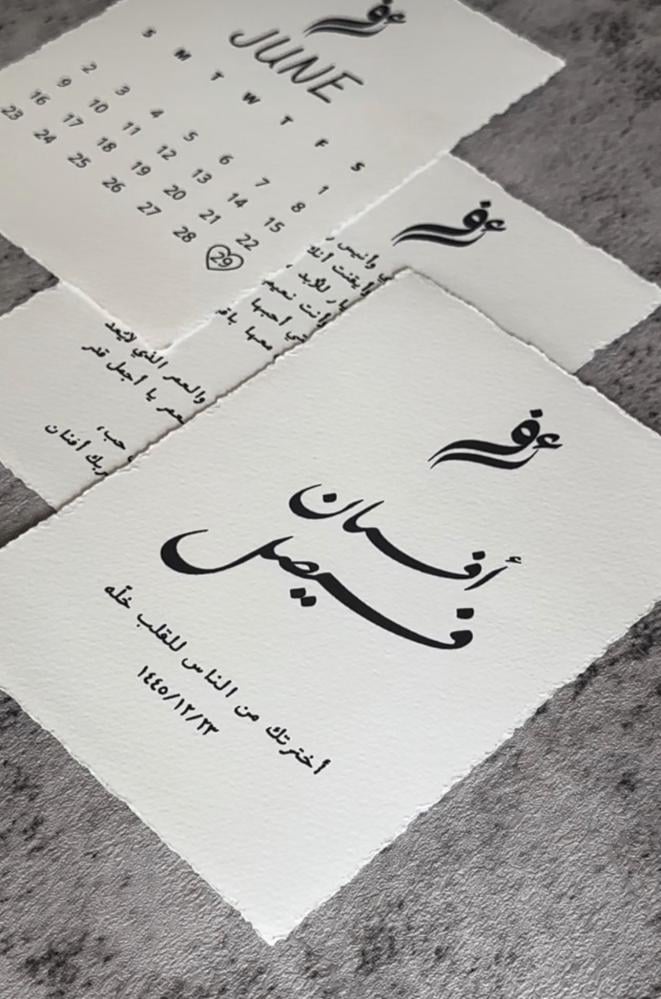 JUNE
S M T W T F S
1
2 3 4 5 6 7 8
9 10 11 12 13 14 15
16 17 18 19 20 21 22
23 24 25 26 27 28 29
وأنيس
أيقنت
للأبد
أنت نعيم
أحبها
معها
والعمر الذي لايُعد
يا أجمل قدر
حب،
أفنان
أفنان
فيصل
أخترتك من الناس للقلب خلّه
١٤٤٥/١٢/٢٣